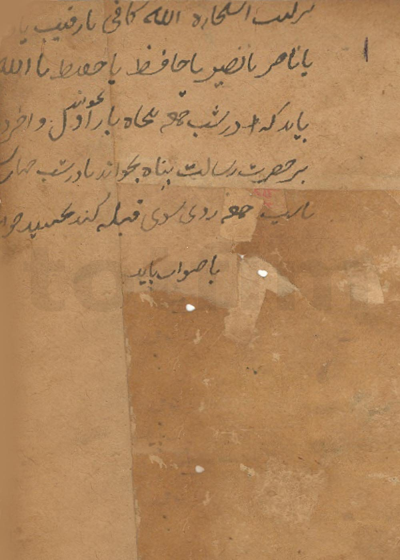 ترکیب استخاره الله کافی یا رقیب یا
یا ناصر یا نصیر یا حافظ یا حفیظ یا الله
باید که در شب جمعه پنجاه بار اول بخواند و آخر
بر حضرت رسالت پناه بخواند یا در شب
شب جمعه روی سوی قبله کند
با صواب یابد